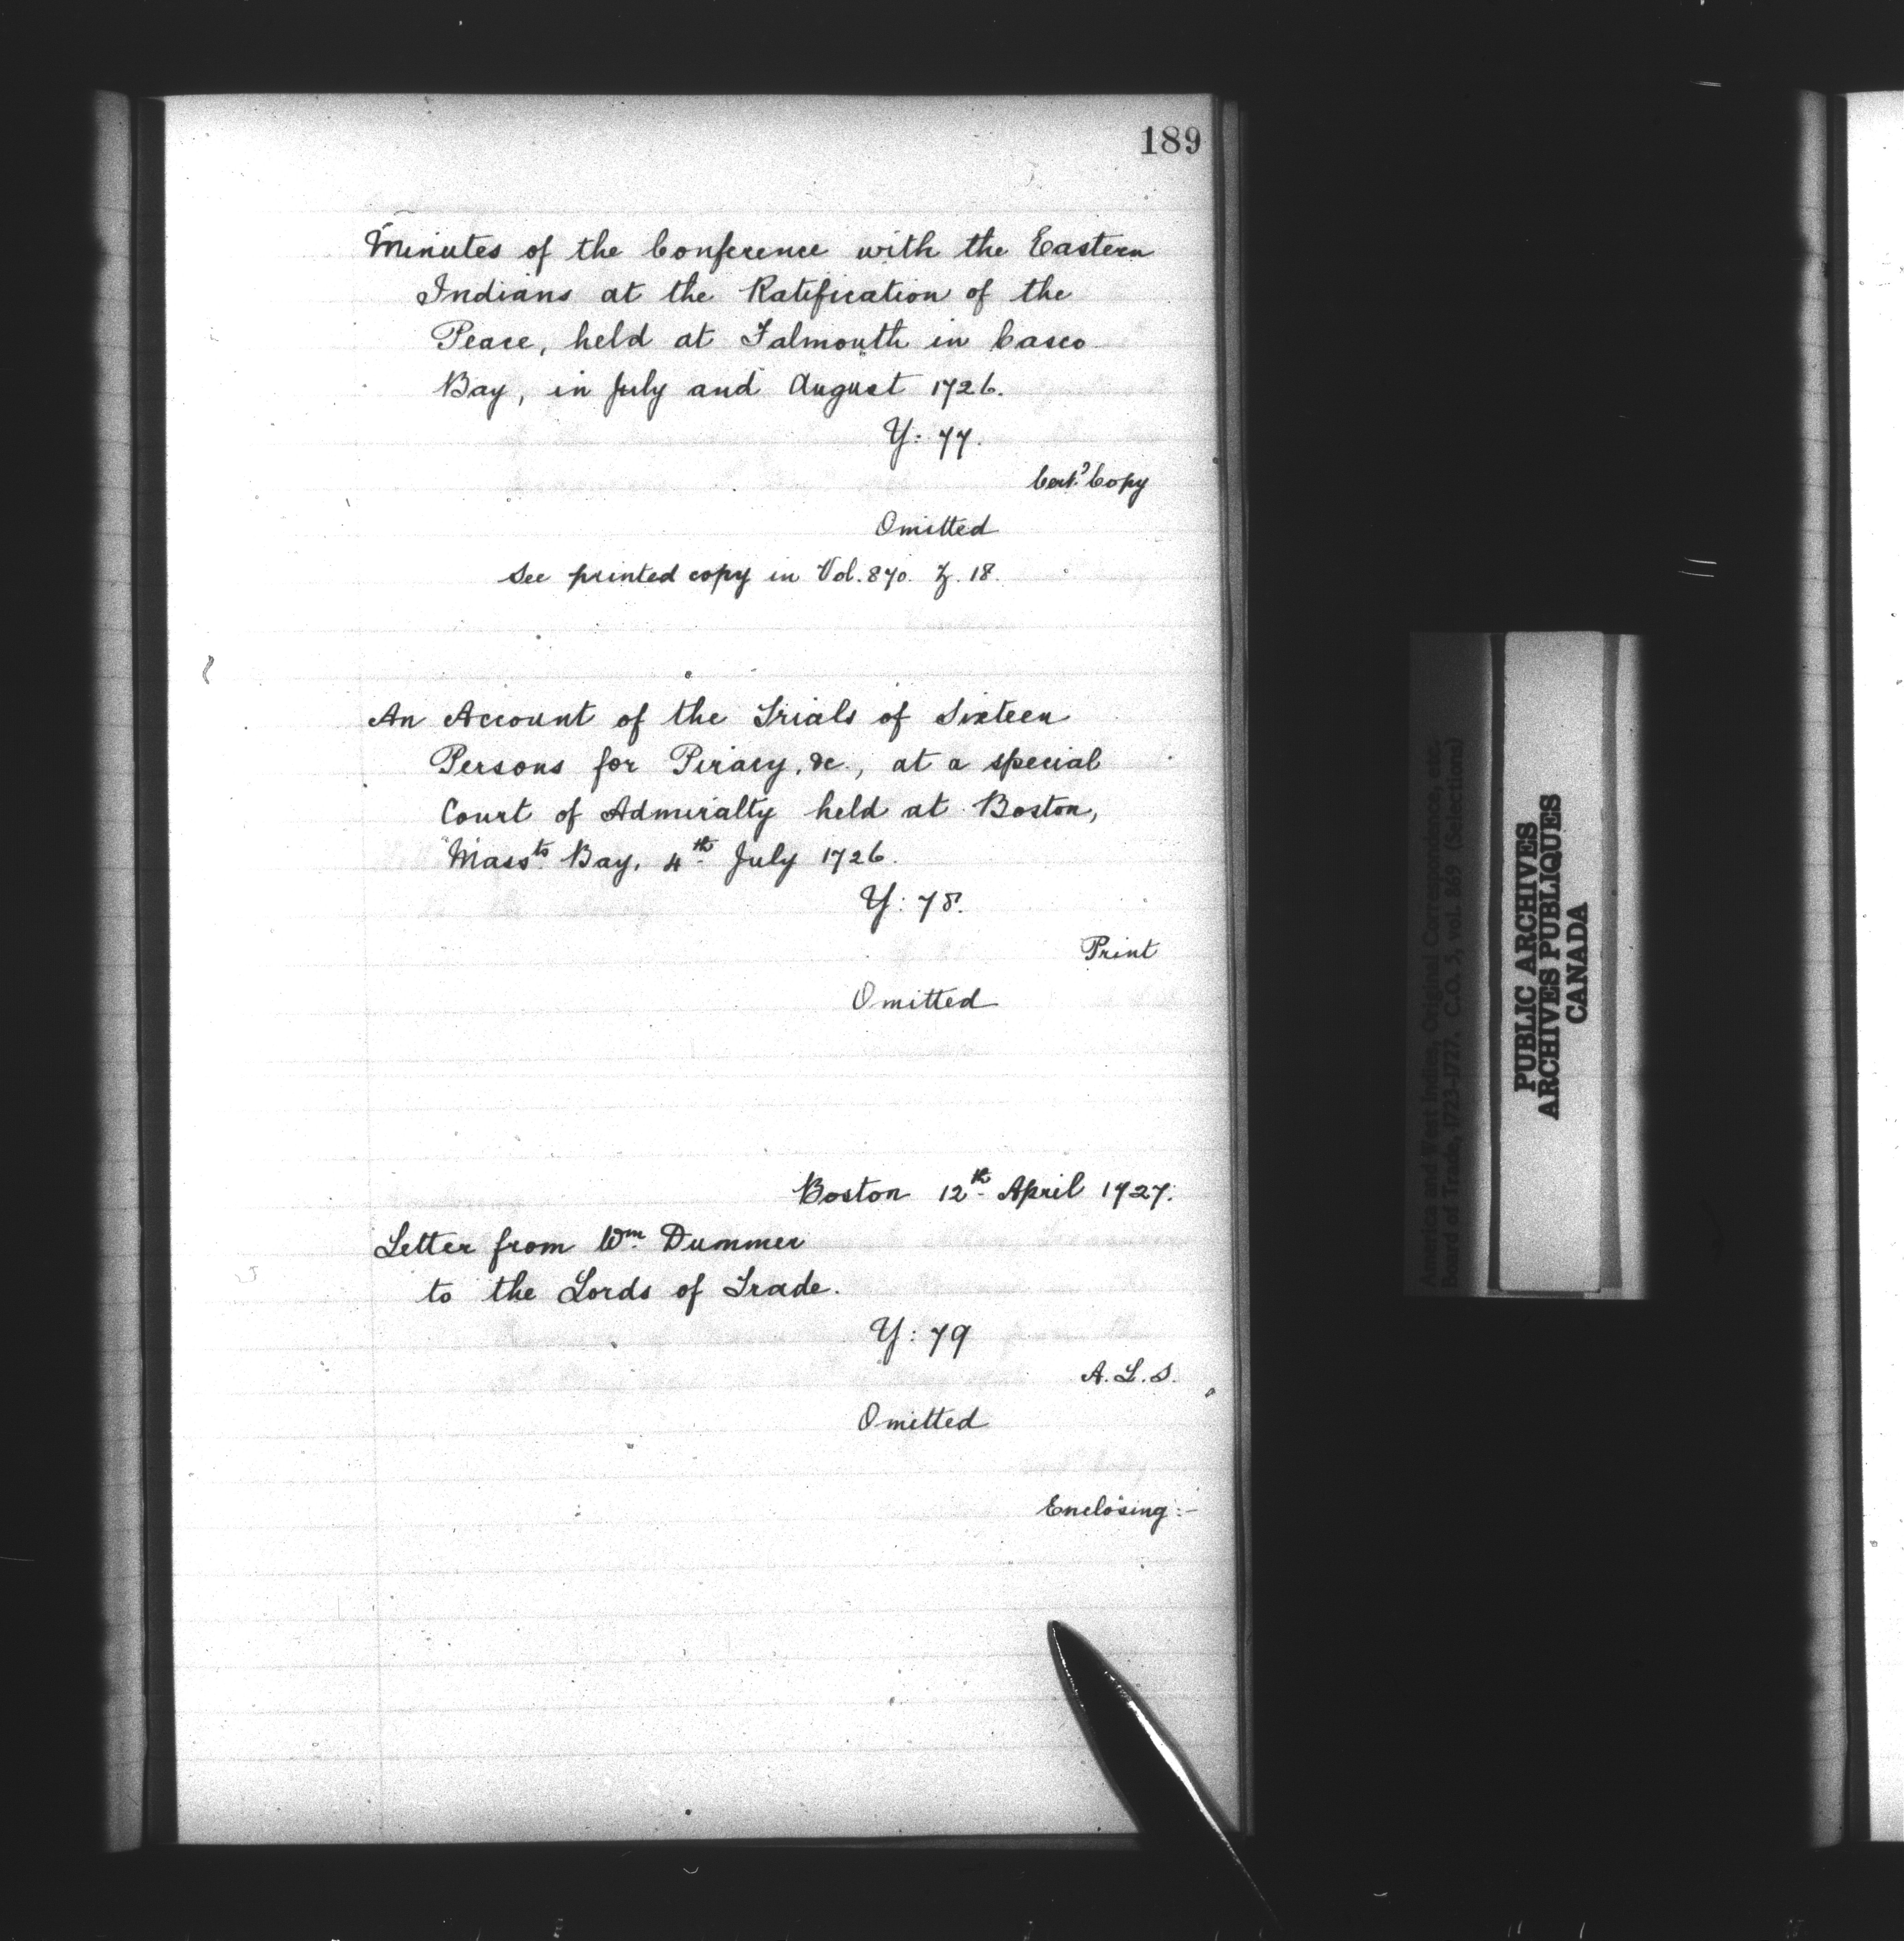 189
Minutes of the Conference with the Eastern
Indians at the Ratification of the
Peace, held at Falmouth in Casco
Bay, in July and August 1726.
Y: 77.
Cert.d Copy
Omitted
See printed copy in Vol. 870. Z. 18.
An Account of the Trials of Sixteen
Persons for Piracy, &c., at a special
Court of Admiralty held at Boston,
Massts Bay, 4th July 1726.
Y: 78.
Print
Omitted
Boston 12th April 1727.
Letter from Wm Dummer
to the Lords of Trade.
Y: 79
A. L. S.
Omitted
Enclosing:-
America and West Indies, Original Correspondence, etc.
Board of Trade, 1723-1727. C.O. 5, vol. 869 (Selections)
PUBLIC ARCHIVES
ARCHIVES PUBLIQUES
CANADA